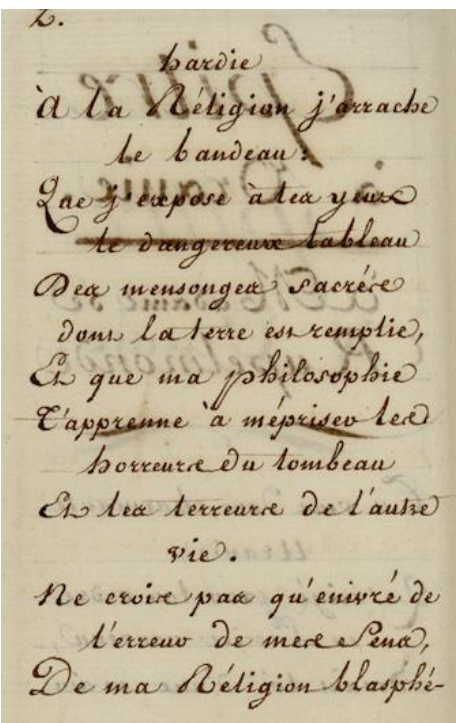 2.
hardie
À la Réligion j'arrache
le bandeau:
Que j'expose à tes yeux
le dangereux tableau
Des mensonges sacrés
dont la terre est remplie,
Et que ma philosophie
T'apprenne à mépriser les
horreurs du tombeau
Et les terreurs de l'autre
vie.
Ne crois pas qu'énivré de
l'erreur de mes Sens,
De ma Réligion blasphé-